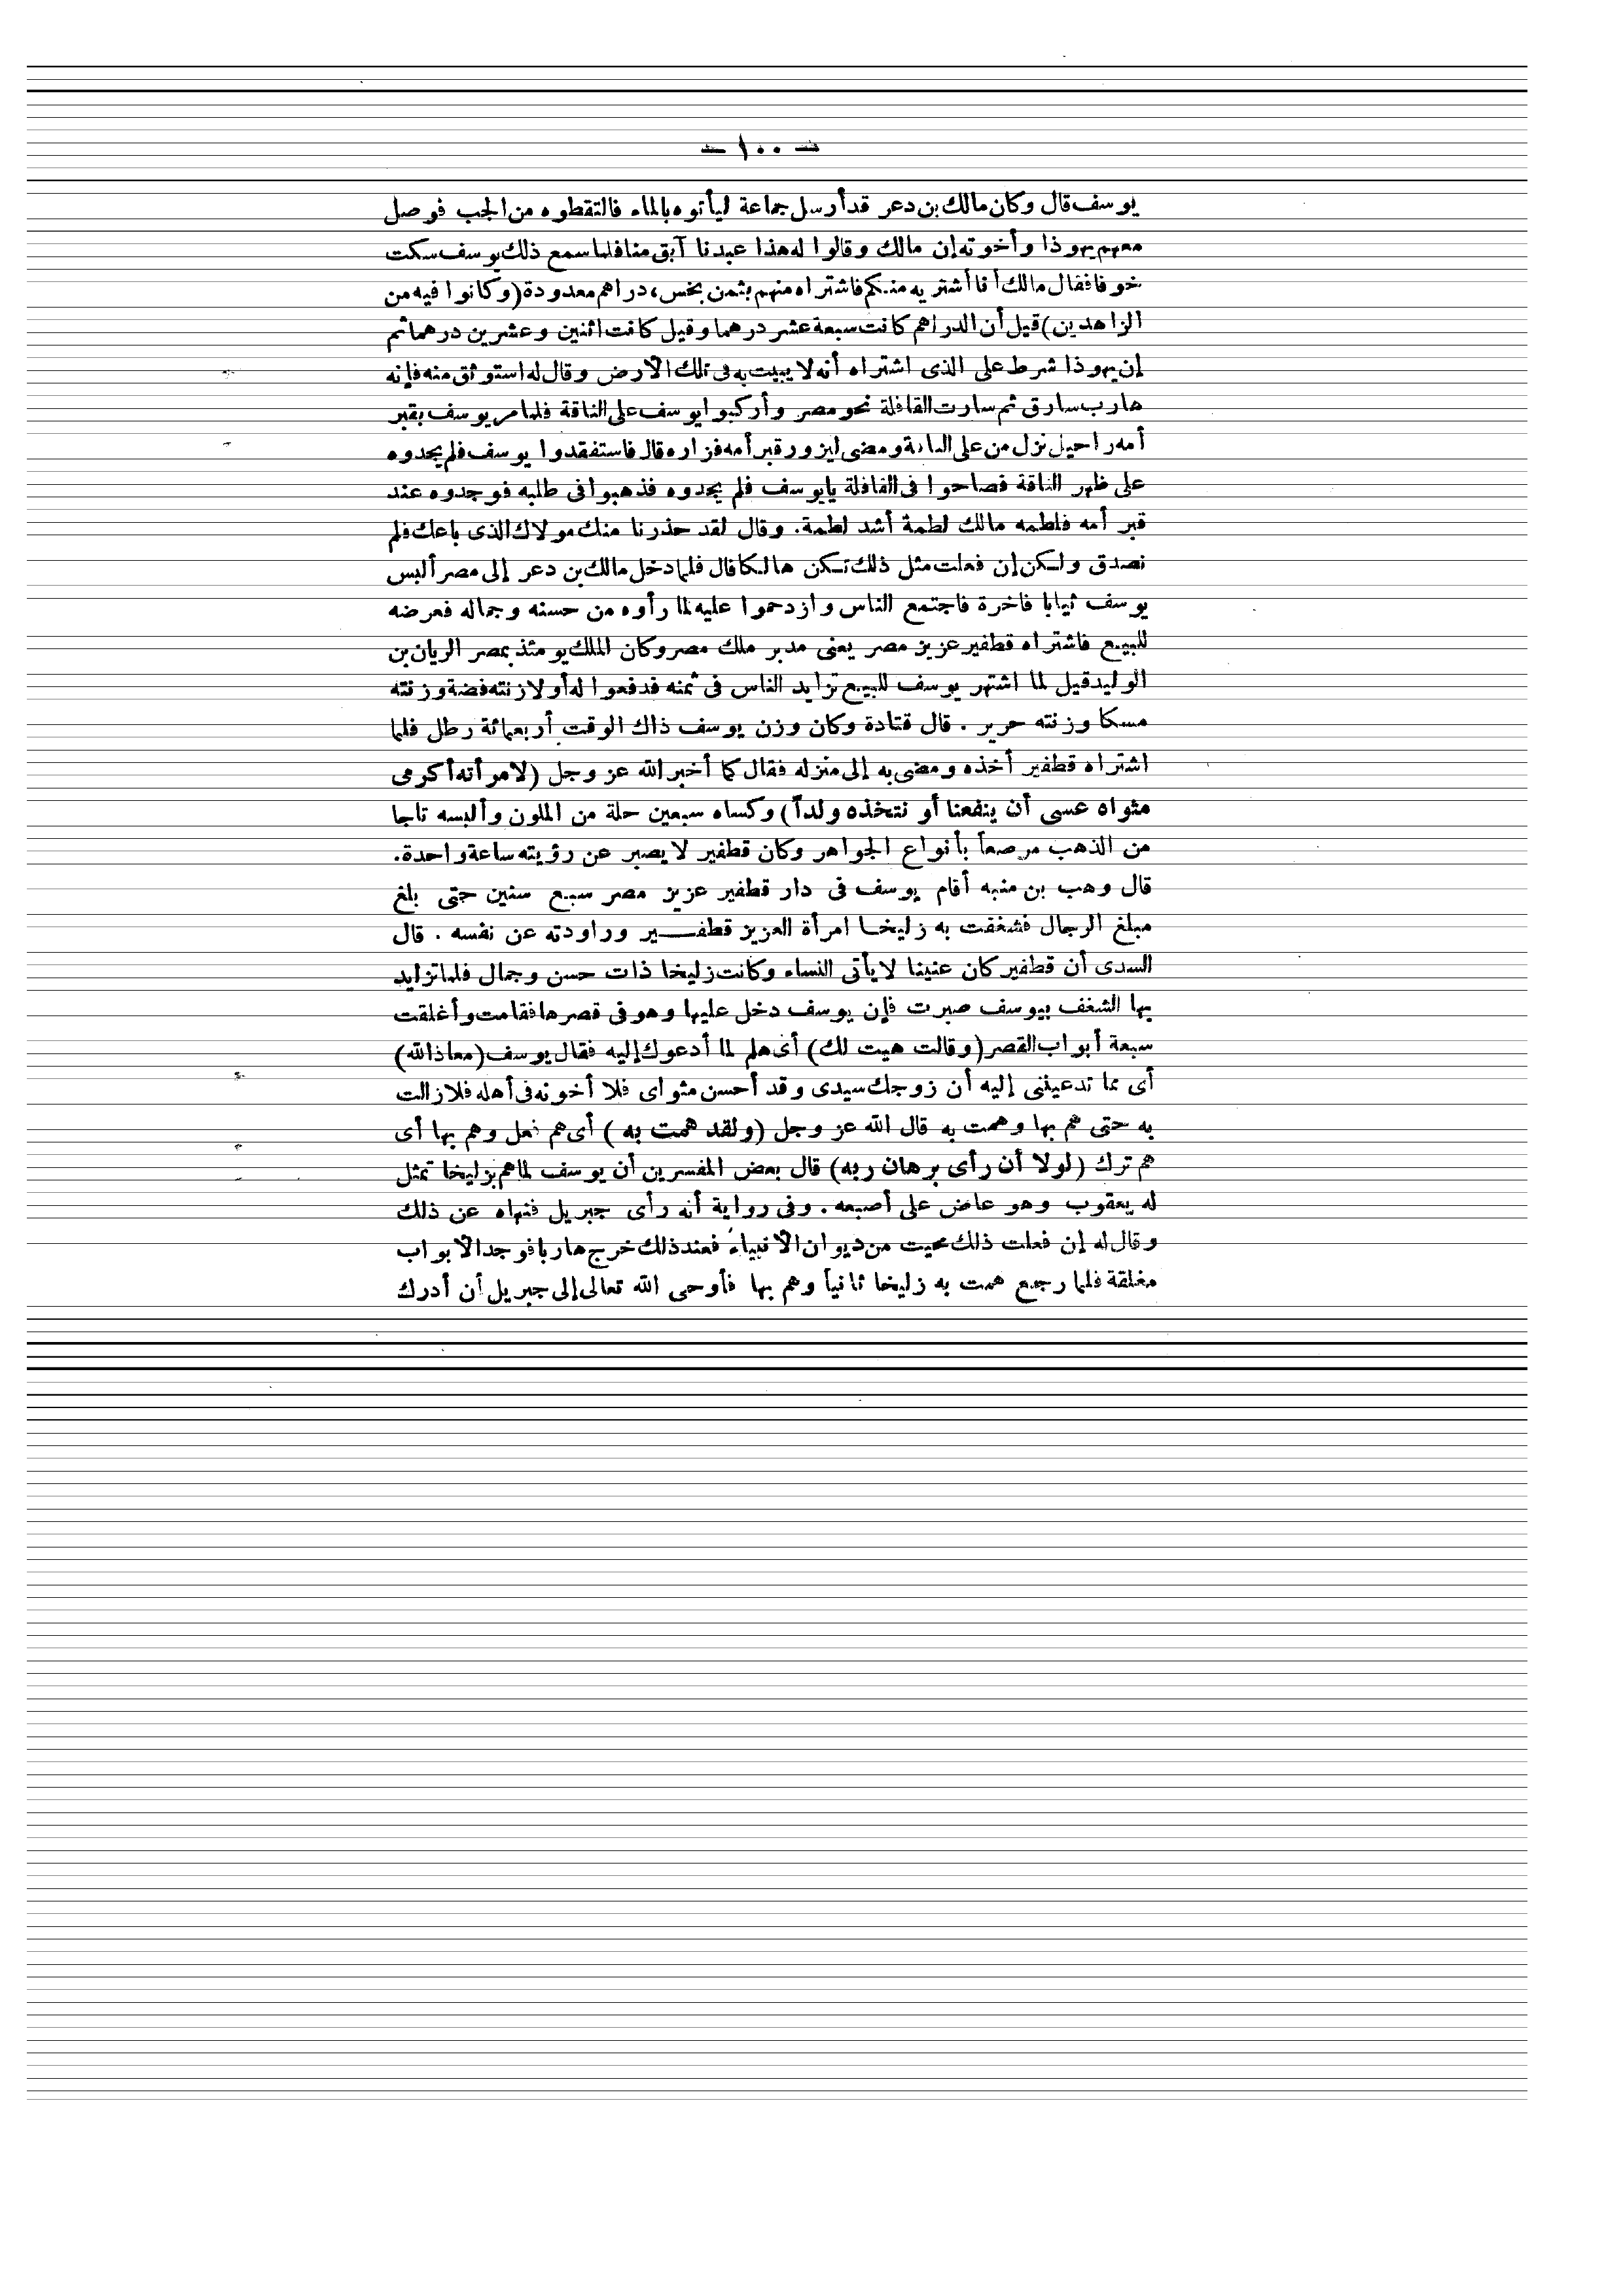 — ١٠٠ —
يوسف قال وكان مالك بن دعر قد أرسل جماعة ليأتوه بالماء فالتقطوه من الجب فوصل
معهم يهوذا وأخوته إن مالك وقالوا له هذا عبدنا آبق منا فلما سمع ذلك يوسف سكت
خوفا فقال مالك أنا أشتريه منكم فاشتراه منهم بثمن بخس، دراهم معدودة (وكانوا فيه من
الزاهدين) قيل أن الدراهم كانت سبعة عشر درهما وقيل كانت اثنين وعشرين درهما ثم
إن يهوذا شرط على الذى اشتراه أنه لا يبيت به فى تلك الأرض وقال له استوثق منه فإنه
هارب سارق ثم سارت القافلة نحو مصر وأركبوا يوسف على الناقة فلما مر يوسف بقبر
أمه راحيل نزل من على الناقة ومضى ليزور قبر أمه فزاره قال فاستفقدوا يوسف فلم يجدوه
على ظهر الناقة فصاحوا فى القافلة يايوسف فلم يجدوه فذهبوا فى طلبه فوجدوه عند
قبر أمه فلطمه مالك لطمة أشد لطمة. وقال لقد حذرنا منك مولاك الذى باعك فلم
نصدق ولكن إن فعلت مثل ذلك تكن هالكا قال فلما دخل مالك بن دعر إلى مصر ألبس
يوسف ثيابا فاخرة فاجتمع الناس وازدحموا عليه لما رأوه من حسنه وجماله فعرضه
للبيع فاشتراه قطفير عزيز مصر يعنى مدبر ملك مصر وكان الملك يومئذ بمصر الريان بن
الوليد قيل لما اشتهر يوسف للبيع تزايد الناس فى ثمنه فدفعوا له أولا زنته فضة وزنته
مسكا وزنته حرير . قال قتادة وكان وزن يوسف ذاك الوقت أربعمائة رطل فلما
اشتراه قطفير أخذه ومضى به إلى منزله فقال كما أخبر الله عز وجل (لامرأته أكرمى
مثواه عسى أن ينفعنا أو نتخذه ولداً) وكساه سبعين حلة من الملون وألبسه تاجا
من الذهب مرصعاً بأنواع الجواهر وكان قطفير لا يصبر عن رؤيته ساعة واحدة.
قال وهب بن منبه أقام يوسف فى دار قطفير عزيز مصر سبع سنين حتى بلغ
مبلغ الرجال فشغفت به زليخا امرأة العزيز قطفـــير وراودته عن نفسه . قال
السدى أن قطفير كان عنينا لا يأتى النساء وكانت زليخا ذات حسن وجمال فلما تزايد
بها الشغف بيوسف صبرت فإن يوسف دخل عليها وهو فى قصرها فقامت وأغلقت
سبعة أبواب القصر (وقالت هيت لك) أى هلم لما أدعوك إليه فقال يوسف (معاذ الله)
أى مما تدعينى إليه أن زوجك سيدى وقد أحسن مثواى فلا أخونه فى أهله فلا زالت
به حتى هم بها وهمت به قال الله عز وجل (ولقد همت به ) أى هم فعل وهم بها أى
هم ترك (لولا أن رأى برهان ربه) قال بعض المفسرين أن يوسف لما هم بزليخا تمثل
له يعقوب وهو عاض على أصبعه . وفى رواية أنه رأى جبريل فنهاه عن ذلك
وقال له إن فعلت ذلك محيت من ديوان الأنبياء فعند ذلك خرج هاربا فوجد الأبواب
مغلقة فلما رجع همت به زليخا ثانياً وهم بها فأوحى الله تعالى إلى جبريل أن أدرك